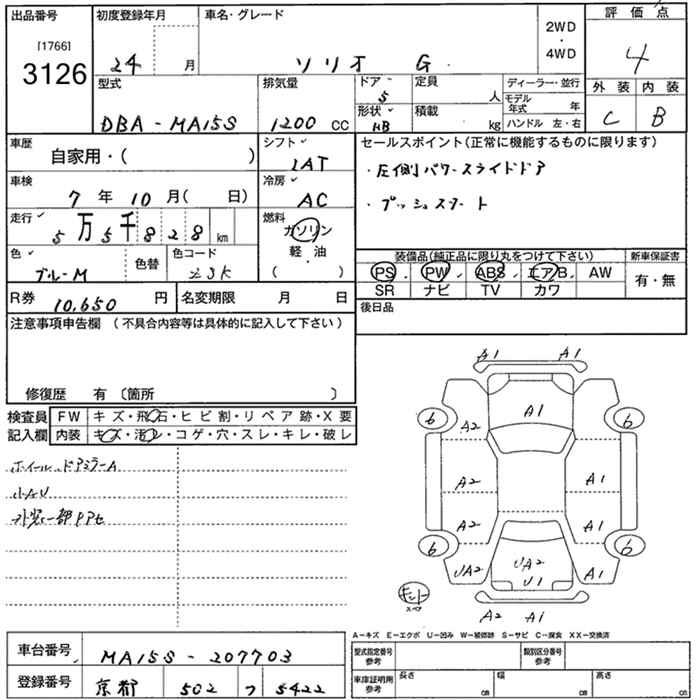 出品番号
[1766]
3126
初度登録年月
24 月
車名・グレード
ソリオ G
2WD
・
4WD
評価点
4
外装 内装
C B
型式
DBA-MA15S
排気量
1200 CC
ドア 5
形状 HB
定員 人
積載 kg
ディーラー・並行
モデル年式 年
ハンドル 左・右
車歴
自家用・( )
シフト
IAT
車検
7年10月( 日)
冷房
AC
走行
5万5千828km
燃料
ガソリン
軽・油
( )
色
ブルーM
色替
色コード
ZJK
R券
10,650円
名変期限 月 日
セールスポイント(正常に機能するものに限ります)
・左側パワースライドドア
・プッシュスタート
装備品(純正品に限り丸をつけて下さい)
PS PW ABS エアB AW
SR ナビ TV カワ
新車保証書
有・無
後日品
注意事項申告欄 (不具合内容等は具体的に記入して下さい)
修復歴 有 〔箇所 〕
検査員記入欄
FW キズ・飛石・ヒビ割・リペア跡・X要
内装 キズ・汚レ・コゲ・穴・スレ・キレ・破レ
ホイール、ドアミラーA
小AU
外装一部アセ
A1 A1
6 A1 6
A2
A2 A1
A2 A1
6 6
UA2 UA2 A1
U1
キット
スペア
A2 A1
A-キズ E-エクボ U-凹み W-補修跡 S-サビ C-腐食 XX-交換済
車台番号
MA15S-207703
登録番号
京都 502 つ 5422
型式指定番号
参考
類別区分番号
参考
車庫証明用
参考
長さ cm
幅 cm
高さ cm